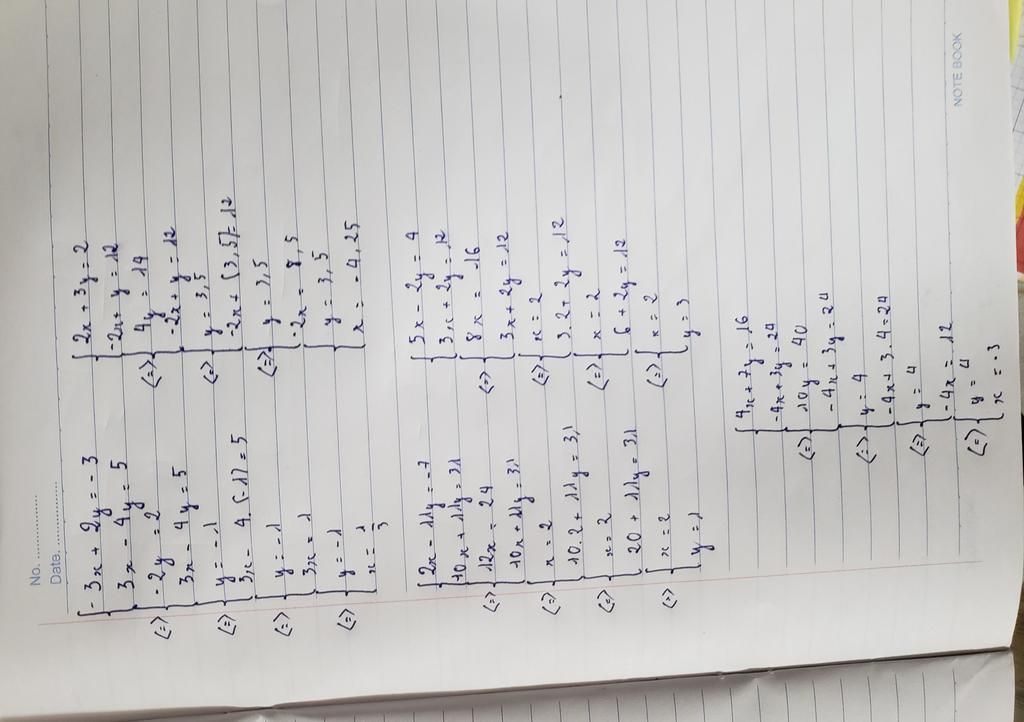 No. ....................
Date. ....................
{ - 3x + 2y = - 3
3x - 4y = 5
(=) { - 2y = 2
3x - 4y = 5
(=) { y = - 1
3x - 4.(-1) = 5
(=) { y = - 1
3x = 1
(=) { y = - 1
x = 1/3
{ 2x + 3y = 2
-2x + y = 12
(=) { 4y = 14
-2x + y = 12
(=) { y = 3,5
-2x + (3,5) = 12
(=) { y = 3,5
-2x = 8,5
{ y = 3,5
x = - 4,25
{ 2x - 11y = -7
10x + 11y = 31
(=) { 12x = 24
10x + 11y = 31
(=) { x = 2
10.2 + 11y = 31
(=) { x = 2
20 + 11y = 31
(=) { x = 2
y = 1
{ 5x - 2y = 4
3x + 2y = 12
(=) { 8x = 16
3x + 2y = 12
(=) { x = 2
3.2 + 2y = 12
(=) { x = 2
6 + 2y = 12
(=) { x = 2
y = 3
{ 4x + 7y = 16
-4x + 3y = 24
(=) { 10y = 40
-4x + 3y = 24
(=) { y = 4
-4x + 3.4 = 24
(=) { y = 4
-4x = 12
(=) { y = 4
x = - 3
NOTE BOOK